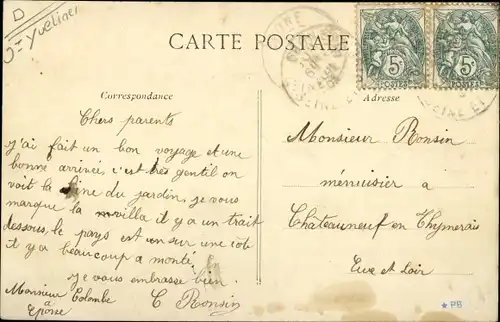 D
D= Yvelines
CARTE POSTALE
5c
5c
POSTES
POSTES
SEINE ET
Correspondance
Adresse
Chers parents
j'ai fait un bon voyage et une
bonne arrivée, c'est très gentil on
voit la Seine du jardin, je vous
marque la villa il y a un trait
dessous, le pays est en sur une cote
il y a beaucoup a monté.
je vous embrasse bien
C Ronsin
Monsieur Colombe
a
Eponse
Monsieur Ronsin
menuisier a
Châteauneuf en Thymerais
Eure et Loir
*PB